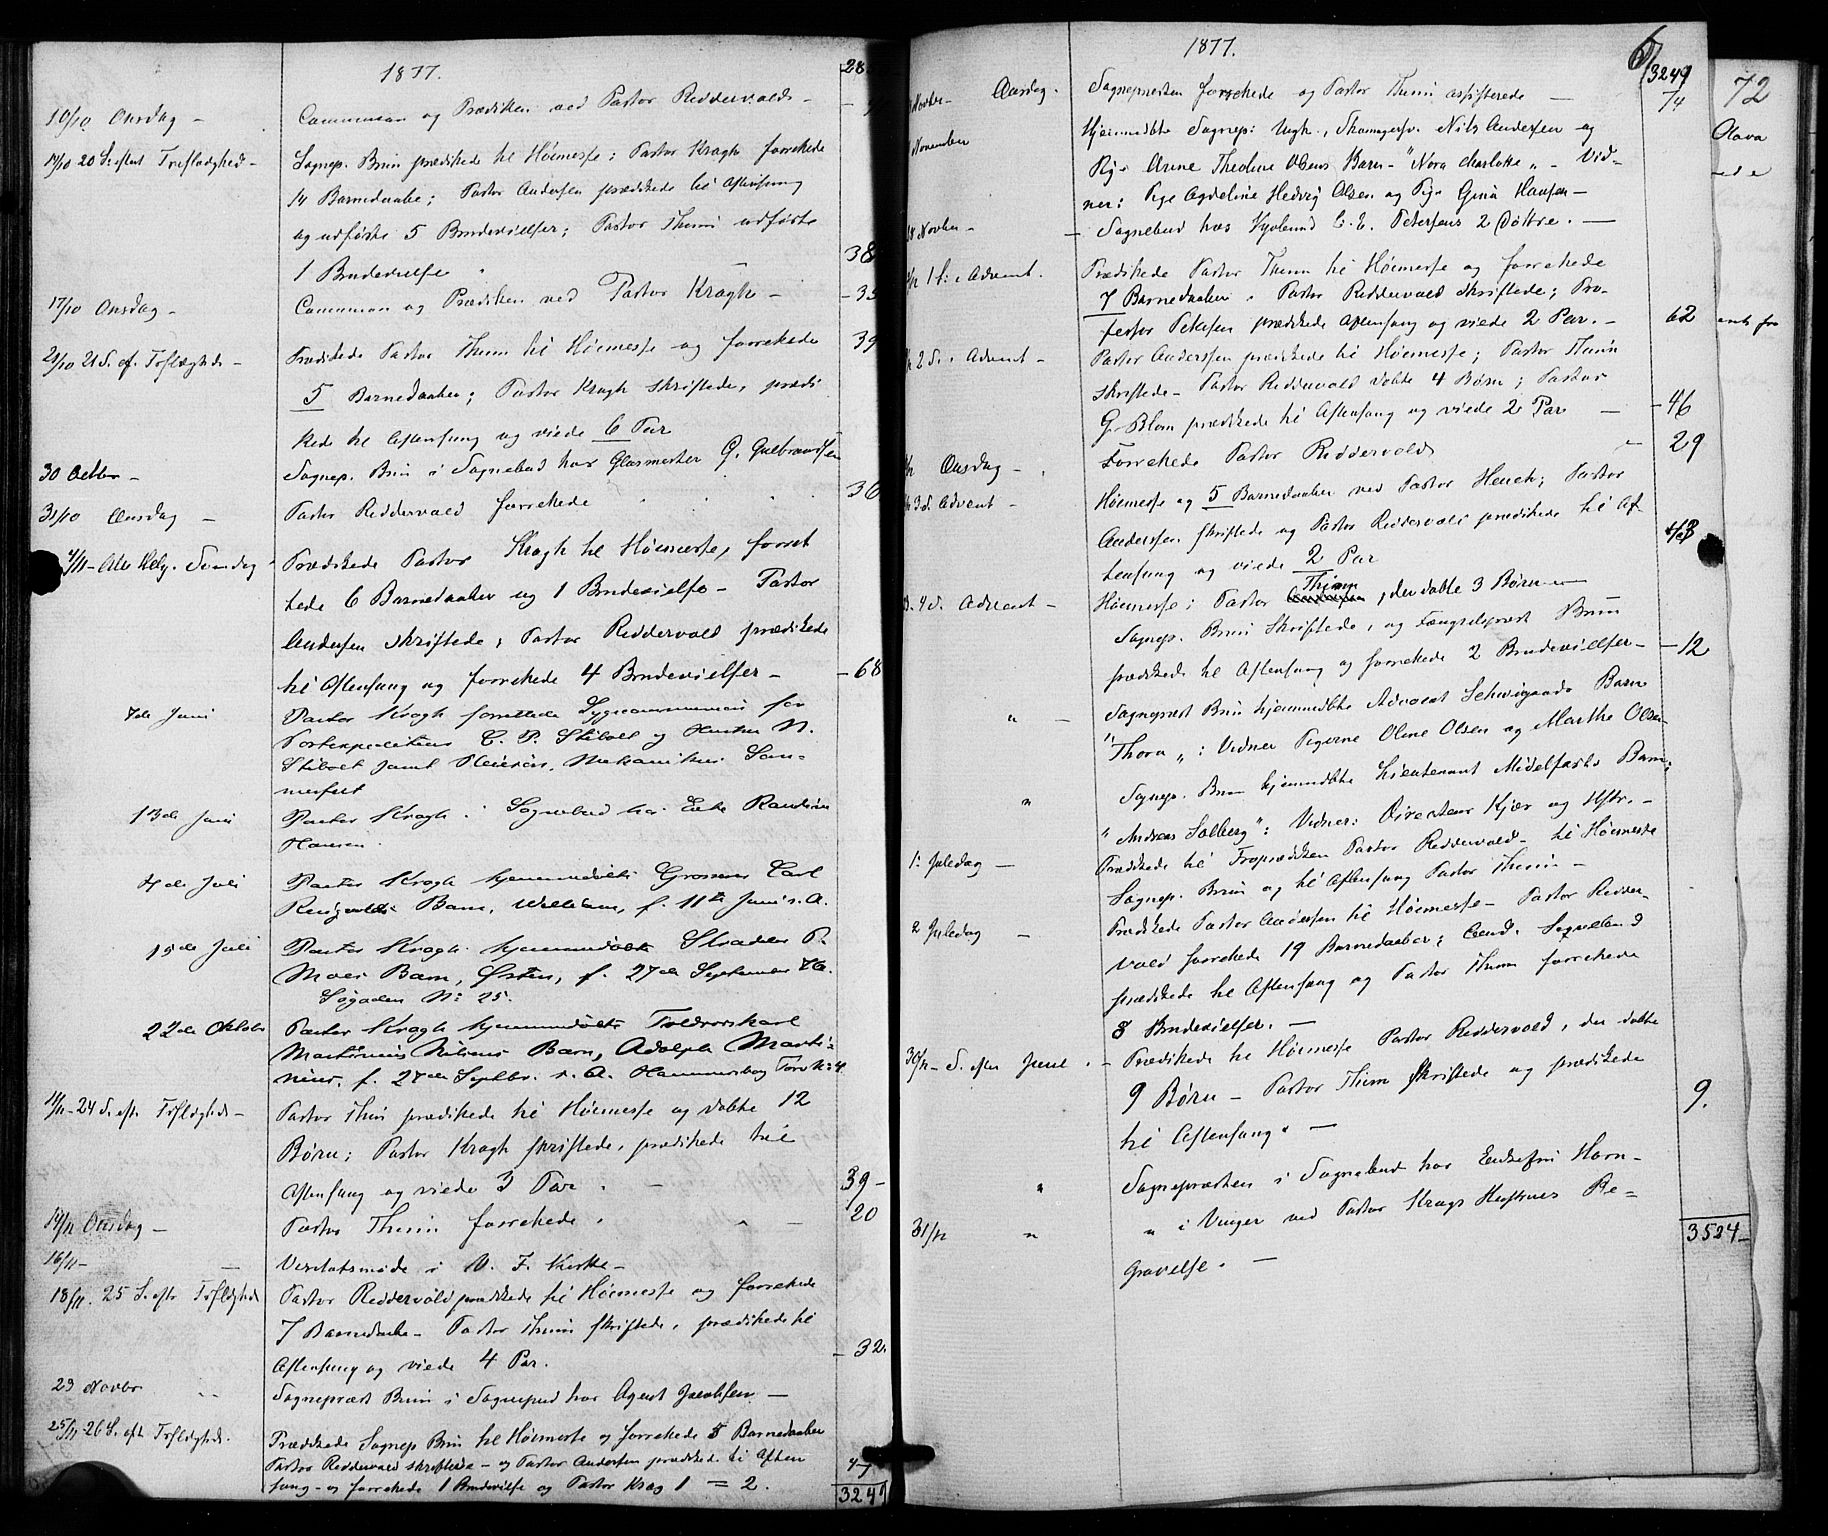 1877.
28
10/10 Onsdag - Communion og Prædiken ved Pastor Riddervold -
14/10 20 S. efter Trefoldighed - Sognep. Brun prædikede til Høimesse; Pastor Kragh forrettede
14 Barnedaabe; Pastor Andersen prædikede til Aftensang
og udførte 5 Brudevielser; Pastor Thinn udførte
1 Brudevielse 38
17/10 Onsdag - Communion og Prædiken ved Pastor Kragh - 35
21/10 21 S. ef. Trefoldighed - Prædikede Pastor Thinn til Høimesse og forrettede 39
5 Barnedaaber; Pastor Kragh skriftede, prædi
kede til Aftensang og viede 6 Par
30 Octbr - Sognep. Brun i Sognebud hos Glasmester G. Gulbrandsen
31/10 Onsdag - Pastor Riddervold forrettede 36
4/11 - Alle Helg. Søndag - Prædikede Pastor Kragh til Høimesse, forret
tede 6 Barnedaaber og 1 Brudevielse - Pastor
Andersen skriftede; Pastor Riddervold prædikede
til Aftensang og forrettede 4 Brudevielser - - 68
7de Juni Pastor Kragh forrettede Sygecommunion for
Postexpediteur C. P. Stibolt og Hustru N.
Stibolt samt Pleiersken, Mekanikus Som-
merfelt
13de Juni Pastor Kragh i Sognebud hos Enke Randine
Hansen.
4de Juli Pastor Kragh hjemmedøbte Grosserer Carl
Barn, William, f. 11te Juni s. A.
15de Juli Pastor Kragh hjemmedøbte P.
Moes Barn, Østen, f. 27de September 76.
Søgaden No 25.
22de Oktober Pastor Kragh hjemmedøbte
Martinius Nilsens Barn, Adolph Marti-
nius, f. 27de Septbr. s. A. Hammersborg Torv No 4
11/11 - 24 S. eft. Trefoldighed - Pastor Thinn prædikede til Høimesse og døbte 12
Børn; Pastor Kragh skriftede, prædikede til
Aftensang og viede 3 Par. - 39 -
14/11 Onsdag - Pastor Thinn forrettede. 20
16/11 - Visitatsmøde i V. F. Kirke -
18/11. 25 S. efter Trefoldighed Pastor Riddervold prædikede til Høimesse og forrettede
7 Barnedaabe - Pastor Thinn skriftede, prædikede til
Aftensang og viede 4 Par. - 32
23 Novbr Sognepræst Brun i Sognebud hos Agent Jacobsen -
25/11 26 S. efter Trefoldighed. Prædikede Sognep Brun til Høimesse og forrettede 5 Barnedaaber
Pastor Riddervold skriftede - og Pastor Andersen prædikede til Aften
sang - og forrettede 1 Brudevielse og Pastor Krag 1 = 2. 47
3249
1877.
6
3249
Novbr - Onsdag. Sognepræsten forrettede og Pastor Thinn assisterede - 74
November Hjemmedøbte Sognep: Ungk., Nils Andersen og
Pig. Anne Theoline Olsens Barn - "Nora Charlotte" - Vid-
ner: Pige Agdeline Hedvig Olsen og Pig. Gina Hansen -
Novbr - - Sognebud hos E. E. Petersens 2 Døttre. -
1 S. i Advent. Prædikede Pastor Thinn til Høimesse og forrettede
7 Barnedaaber. Pastor Riddervold skriftede; Pro-
fessor Petersen prædikede Aftensang og viede 2 Par. - 62
2 S. i Advent - Pastor Andersen prædikede til Høimesse; Pastor Thinn
skriftede - Pastor Riddervold døbte 4 Børn; Pastor
G. Blom prædikede til Aftensang og viede 2 Par - - 46
Onsdag - Forrettede Pastor Riddervold 29
3 S. Advent - Høimesse og 5 Barnedaaber ved Pastor Heuch; Pastor
Andersen skriftede og Pastor Riddervold prædikede til Af
tensang og viede 2 Par 43
4 S. Advent - Høimesse; Pastor Thinn, der døbte 3 Børn -
Sognep. Brun skriftede, og Fængselsprest Brun
prædikede til Aftensang og forrettede 2 Brudevielser - - 12
" - Sognepræst Brun hjemmedøbte Advocat Schweigaards Barn
"Thora": Vidner Pigerne Oline Olsen og Marthe Olsen
" Sognep. Brun hjemmedøbte Lieutenant Midelfarts Barn
"Andreas Solberg": Vidner: Directeur Kjær og Hstr. -
1. Juledag - Prædikede til Froprædiken Pastor Riddervold - til Høimesse
Sognep. Brun og til Aftensang Pastor Thinn -
2 Juledag - Prædikede Pastor Andersen til Høimesse - Pastor Ridder-
vold forrettede 19 Barnedaaber; Cand.
prædikede til Aftensang og Pastor Thinn forrettede
8 Brudevielser. -
30/12 - S. efter Juul. - Prædikede til Høimesse Pastor Riddervold, der døbte
9 Børn - Pastor Thinn skriftede og prædikede 9.
til Aftensang. -
" Sognepræsten i Sognebud hos Horn -
31/12 " " i Vinger ved Pastor Krags Hustrues Be-
gravelse. -
3524 -
72
Olava